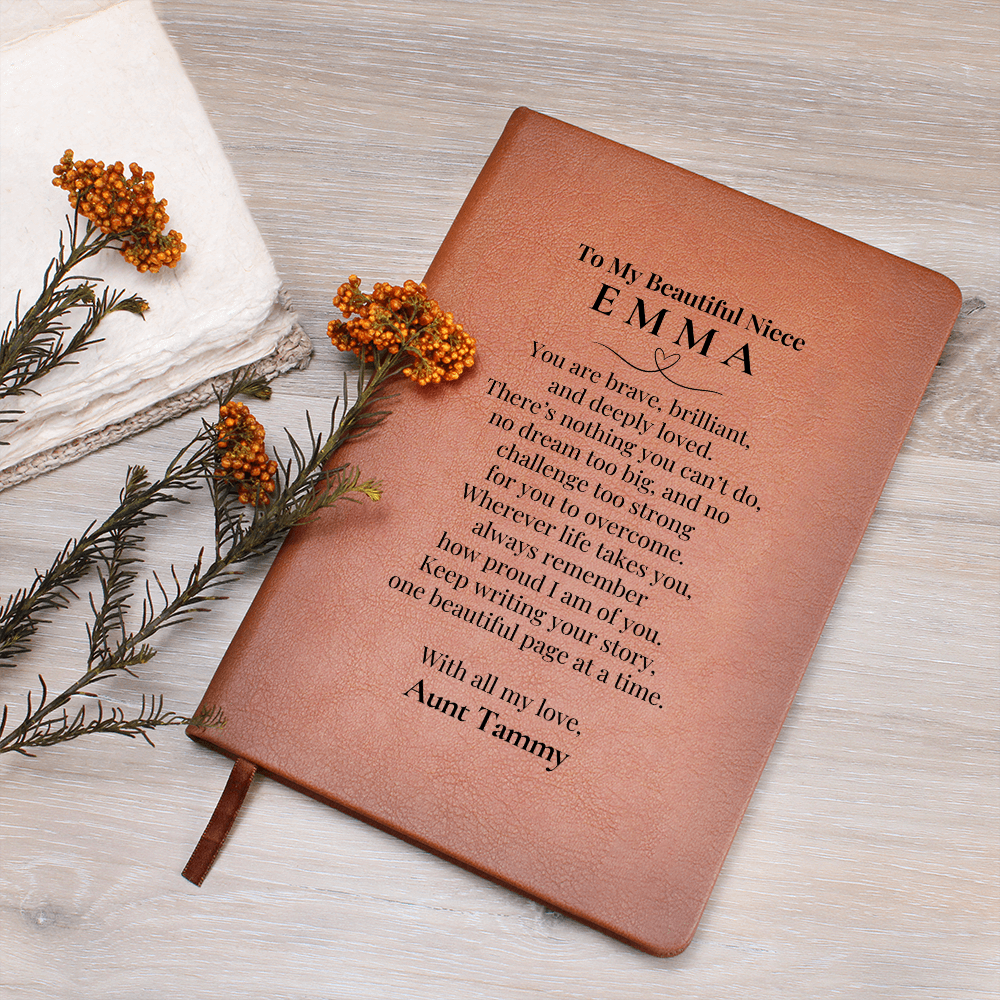 To My Beautiful Niece
EMMA
You are brave, brilliant,
and deeply loved.
There's nothing you can't do,
no dream too big, and no
challenge too strong
for you to overcome.
Wherever life takes you,
always remember
how proud I am of you.
Keep writing your story,
one beautiful page at a time.
With all my love,
Aunt Tammy